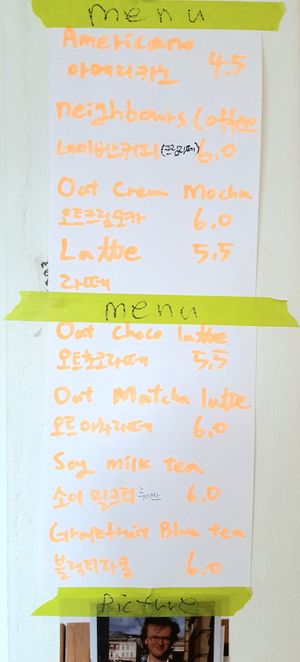 menu
Americano
아메리카노 4.5
neighbours Coffee
네이반커피 (크림라떼) 6.0
Oat Cream Mocha
오트크림모카 6.0
Latte 5.5
라떼
menu
Oat Choco latte
오트초코라떼 5.5
Oat Matcha latte
오트마차라떼 6.0
Soy milk tea
소이밀크티 6.0
Grapefruit Black tea
블랙티자몽 6.0
Picture